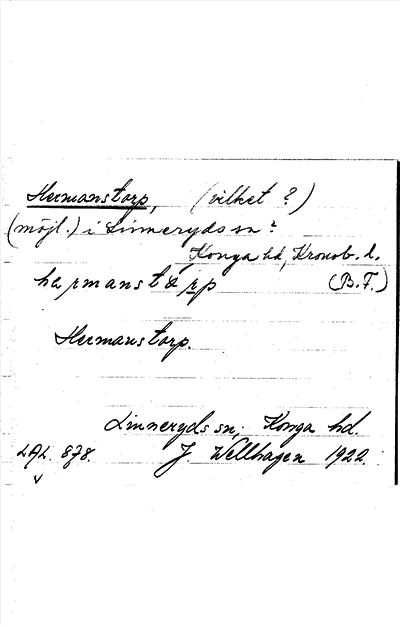 Hermanstorp, (vilket ?)
(möjl.) i Linneryds sn?
Konga hd, Kronob. l.
(B.F.)
Hermanstorp.
Linneryds sn, Konga hd.
LAL. 878. J. Wellhagen 1922.